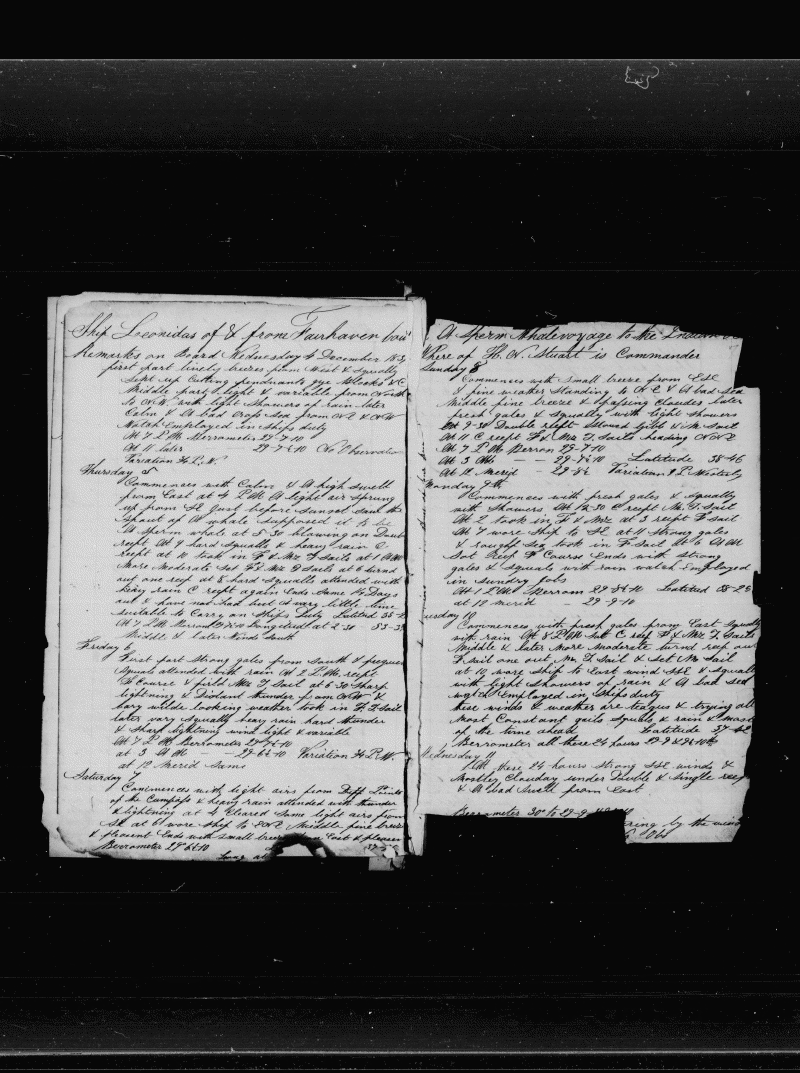 Ship Leonidas of & from Fairhaven
Remarks on Board Wednesday 4 December
first part lively breezes from West & squally
Sett up Cutting pendnants gye Blocks & C
Middle part light & variable from North
to NW with light showers of rain later
Calm & A bad Crop sea from NE & NW
Watch Employed in Ships duty
At 7 P M Berrometer 29-7-10
At 11 later — 29-7½10 No Observation
Variation ¾ P. W.
Thursday 5
Commences with Calm & A high swell
from East at 4 P M A light air sprung
up from SE Just before sunset saw the
spout of A whale supposed it to be
A sperm whale at 5 30 blowing on Doub
reept At 9 hard squalls & heavy rain C
reept at 10 took in F & Mz T Sails at 1
More Moderate Set F & Mz T Sails at 6 turnd
out one reef at 8 hard squalls attended with
heavy rain C reept again Ends Some
out & have not had but A very little time
suitable to Carry on Ships Duty Latitud 38
At 7 P M Berrom Longitud at 2 30 83-35
Middle & later Winds South
Friday 6
First part strong gales from South & frequent
squals attended with rain At 2 P. M. reept
F Course & furld Mz T Sail at 6 30 sharp
lightning & Distant thunder from NW &
very wilde looking weather took in F. T Sail
later very squally heavy rain hard thunder
& sharp lightning wind light & variable
At 7 P M Berrometer 29-7½10
at 3 A M — 29-6½10 Variation ¾ P. W.
at 12 Merid Same
Saturday 7
Commences with light airs from Diff Points
of the Compass & heavy rain attended with thunder
& lightning at 4 Cleared Some light airs from
SE at 6 wore ship to NNE Middle fine breeze
& plesent Ends with small breeze East & plesen
Berrometer 29-6½10
Long at
A Sperm Whalevoyage to the Indian
Where of H. N. Stuart is Commander
Sunday 8
Commences with small breeze from ESE
& fine weather standing to N E & A bad sea
Middle fine breeze & passing Clouds later
fresh gales & squally with light showers
At 9-30 Double reept stowed Gibb & M Sail
At 11 C reept F & Mz T. Sails heading NNE
At 7 P M Berron 29-7-10
At 3 AM — 29-8½10 Latitude 38-46
At 12 merid — 29-8½ Variation P. Westerly
Monday 9th
Commences with fresh gales & squally
with showers At 12 30 C reept M. T. Sail
At 2 took in F & Mz at 3 reept F Sail
At 7 wore ship to SE at 11 strong gales
& rough sea took in F Sail At 6 A M
Sot Reef F Course Ends with strong
gales & squals with rain watch Employed
in sundry Jobs
At 1 P M Berrom 29-8½10 Latitud 38-25
at 12 merid — 29-9-10
uesday 10
Commences with fresh gales from East squally
with rain At 8 P M Sett C reef F & Mz T Sails
Middle & later More Moderate turnd reef out
F sail one out M T Sail & Set M Sail
at 10 wore ship to East wind SSE & squally
with light showers of rain & A bad sea
wach Employed in Ships duty
these winds & weather are tegus & trying all
Most Constant gails squals & rain & most
of the time ahead Latitude 37-42
Berrometer all these 24 hours 29-9 & 9½10ths
Wednesday 11
All these 24 hours strong SSE winds &
Mostley Clouday under Double & Single reef
& A bad swell from East
Berrometer 30 to 29-9
ring by the
Obs